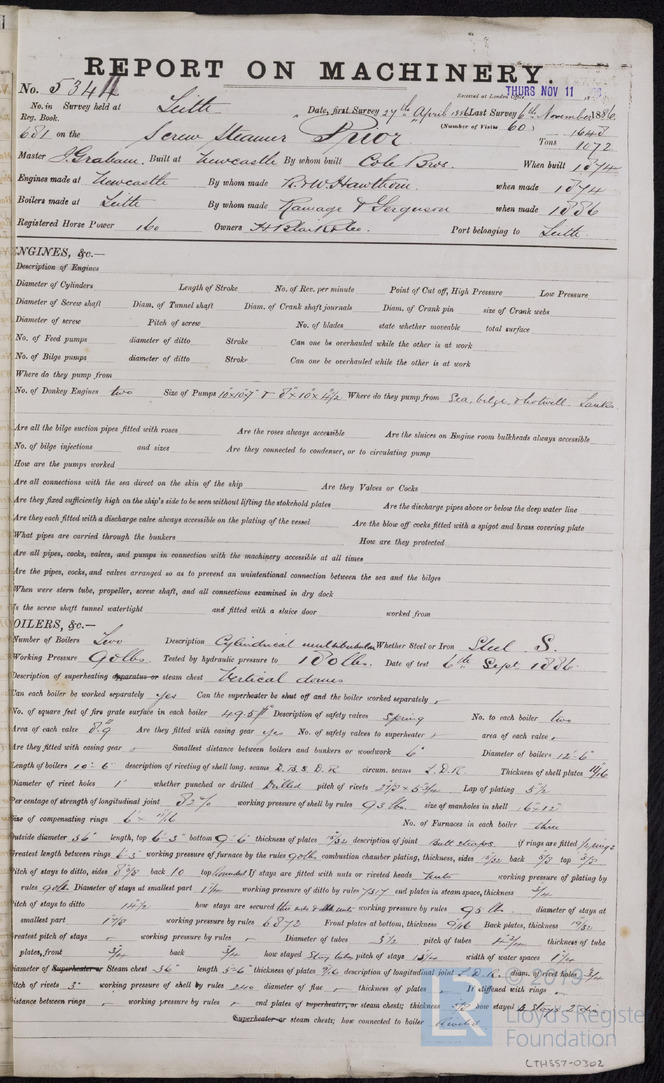 REPORT ON MACHINERY.
No. 5344
Received at London Office THURS NOV 11 18
No. in Survey held at Leith Date, first Survey 27th April 1886 Last Survey 6th November 1886
Reg. Book. (Number of Visits 60)
681 on the Screw Steamer Prior Tons 1648
1072
Master J. Graham. Built at Newcastle By whom built Cole Bros. When built 1874
Engines made at Newcastle By whom made R & W Hawthorn. when made 1874
Boilers made at Leith By whom made Ramage & Ferguson when made 1886
Registered Horse Power 160 Owners Port belonging to Leith
ENGINES, &c.—
Description of Engines
Diameter of Cylinders Length of Stroke No. of Rev. per minute Point of Cut off, High Pressure Low Pressure
Diameter of Screw shaft Diam. of Tunnel shaft Diam. of Crank shaft journals Diam. of Crank pin size of Crank webs
Diameter of screw Pitch of screw No. of blades state whether moveable total surface
No. of Feed pumps diameter of ditto Stroke Can one be overhauled while the other is at work
No. of Bilge pumps diameter of ditto Stroke Can one be overhauled while the other is at work
Where do they pump from
No. of Donkey Engines two Size of Pumps Where do they pump from Sea, bilge, & hotwell Tanks
Are all the bilge suction pipes fitted with roses Are the roses always accessible Are the sluices on Engine room bulkheads always accessible
No. of bilge injections and sizes Are they connected to condenser, or to circulating pump
How are the pumps worked
Are all connections with the sea direct on the skin of the ship Are they Valves or Cocks
Are they fixed sufficiently high on the ship's side to be seen without lifting the stokehold plates Are the discharge pipes above or below the deep water line
Are they each fitted with a discharge valve always accessible on the plating of the vessel Are the blow off cocks fitted with a spigot and brass covering plate
What pipes are carried through the bunkers How are they protected
Are all pipes, cocks, valves, and pumps in connection with the machinery accessible at all times
Are the pipes, cocks, and valves arranged so as to prevent an unintentional connection between the sea and the bilges
When were stern tube, propeller, screw shaft, and all connections examined in dry dock
Is the screw shaft tunnel watertight and fitted with a sluice door worked from
OILERS, &c.—
Number of Boilers Two Description Cylindrical multitubular Whether Steel or Iron Steel S.
Working Pressure 90 lbs. Tested by hydraulic pressure to 180 lbs. Date of test 6th Sept 1886.
Description of superheating apparatus or steam chest Vertical domes
Can each boiler be worked separately yes Can the superheater be shut off and the boiler worked separately
No. of square feet of fire grate surface in each boiler 49.5 Description of safety valves Spring No. to each boiler two
Area of each valve Are they fitted with easing gear yes No. of safety valves to superheater area of each valve
Are they fitted with easing gear Smallest distance between boilers and bunkers or woodwork 6" Diameter of boilers 12' 6"
Length of boilers 10' 6" description of riveting of shell long. seams D.B.S. D.R circum. seams L.D.R. Thickness of shell plates
Diameter of rivet holes 1" whether punched or drilled Drilled pitch of rivets Lap of plating 5 1/2
Per centage of strength of longitudinal joint working pressure of shell by rules 93 lbs. size of manholes in shell 16 x 12
Size of compensating rings No. of Furnaces in each boiler three
Outside diameter 36" length, top 6' 3" bottom 9' 6" thickness of plates description of joint Butt straps if rings are fitted
Greatest length between rings 6' 3" working pressure of furnace by the rules 90 lbs combustion chamber plating, thickness, sides back top
Pitch of stays to ditto, sides back 10 top If stays are fitted with nuts or riveted heads nuts working pressure of plating by
rules 90 lbs Diameter of stays at smallest part working pressure of ditto by rules end plates in steam space, thickness 3/4
Pitch of stays to ditto how stays are secured working pressure by rules 95 lbs diameter of stays at
smallest part working pressure by rules 6872 Front plates at bottom, thickness 9/16 Back plates, thickness
Greatest pitch of stays working pressure by rules Diameter of tubes 3 1/2 pitch of tubes thickness of tube
plates, front 3/4 back 3/4 how stayed Stay tubes pitch of stays width of water spaces
Diameter of Superheater or Steam chest 36" length 5'-6" thickness of plates 9/16 description of longitudinal joint L.D.R. diam. of rivet holes 3/4
Pitch of rivets 3" working pressure of shell by rules 240 diameter of flue thickness of plates If stiffened with rings
Distance between rings working pressure by rules end plates of superheater, or steam chest; thickness how stayed
Superheater or steam chest; how connected to boiler Riveted
© 2019
LR
Lloyd's Register
Foundation
LTHSS7-0302